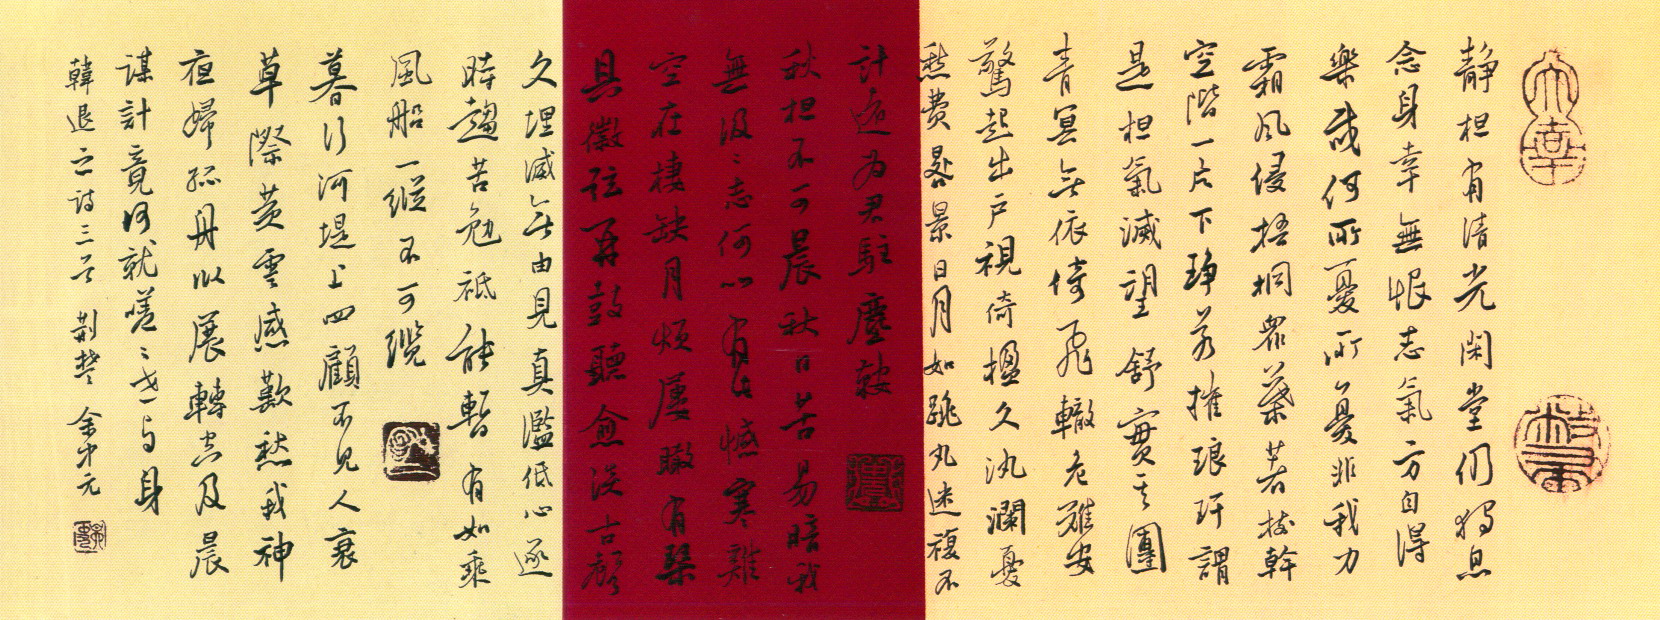 靜夜有清光閑堂仍獨息
念身幸無恨志氣方自得
樂哉何所憂所憂非我力
霜風侵梧桐眾葉著樹幹
空階一片下琤若摧琅玕謂
是夜氣滅望舒霣其團
青冥無依倚飛轍危難安
驚起出戶視倚楹久汍瀾憂
愁費晷景日月如跳丸迷複不
計遠為君駐塵鞍
秋夜不可晨秋日苦易暗我
無汲〻志何以有此憾寒雞
空在棲缺月煩屢瞰有琴
具徽弦再鼓聽愈淡古聲
久埋滅無由見真濫低心逐
時趨苦勉祗能暫有如乘
風船一縱不可纜
暮行河堤上四顧不見人衰
草際黃雲感歎愁我神
夜歸孤舟臥展轉空及晨
謀計竟何就嗟〻世與身
韓退之詩三首 荊楚 余中元